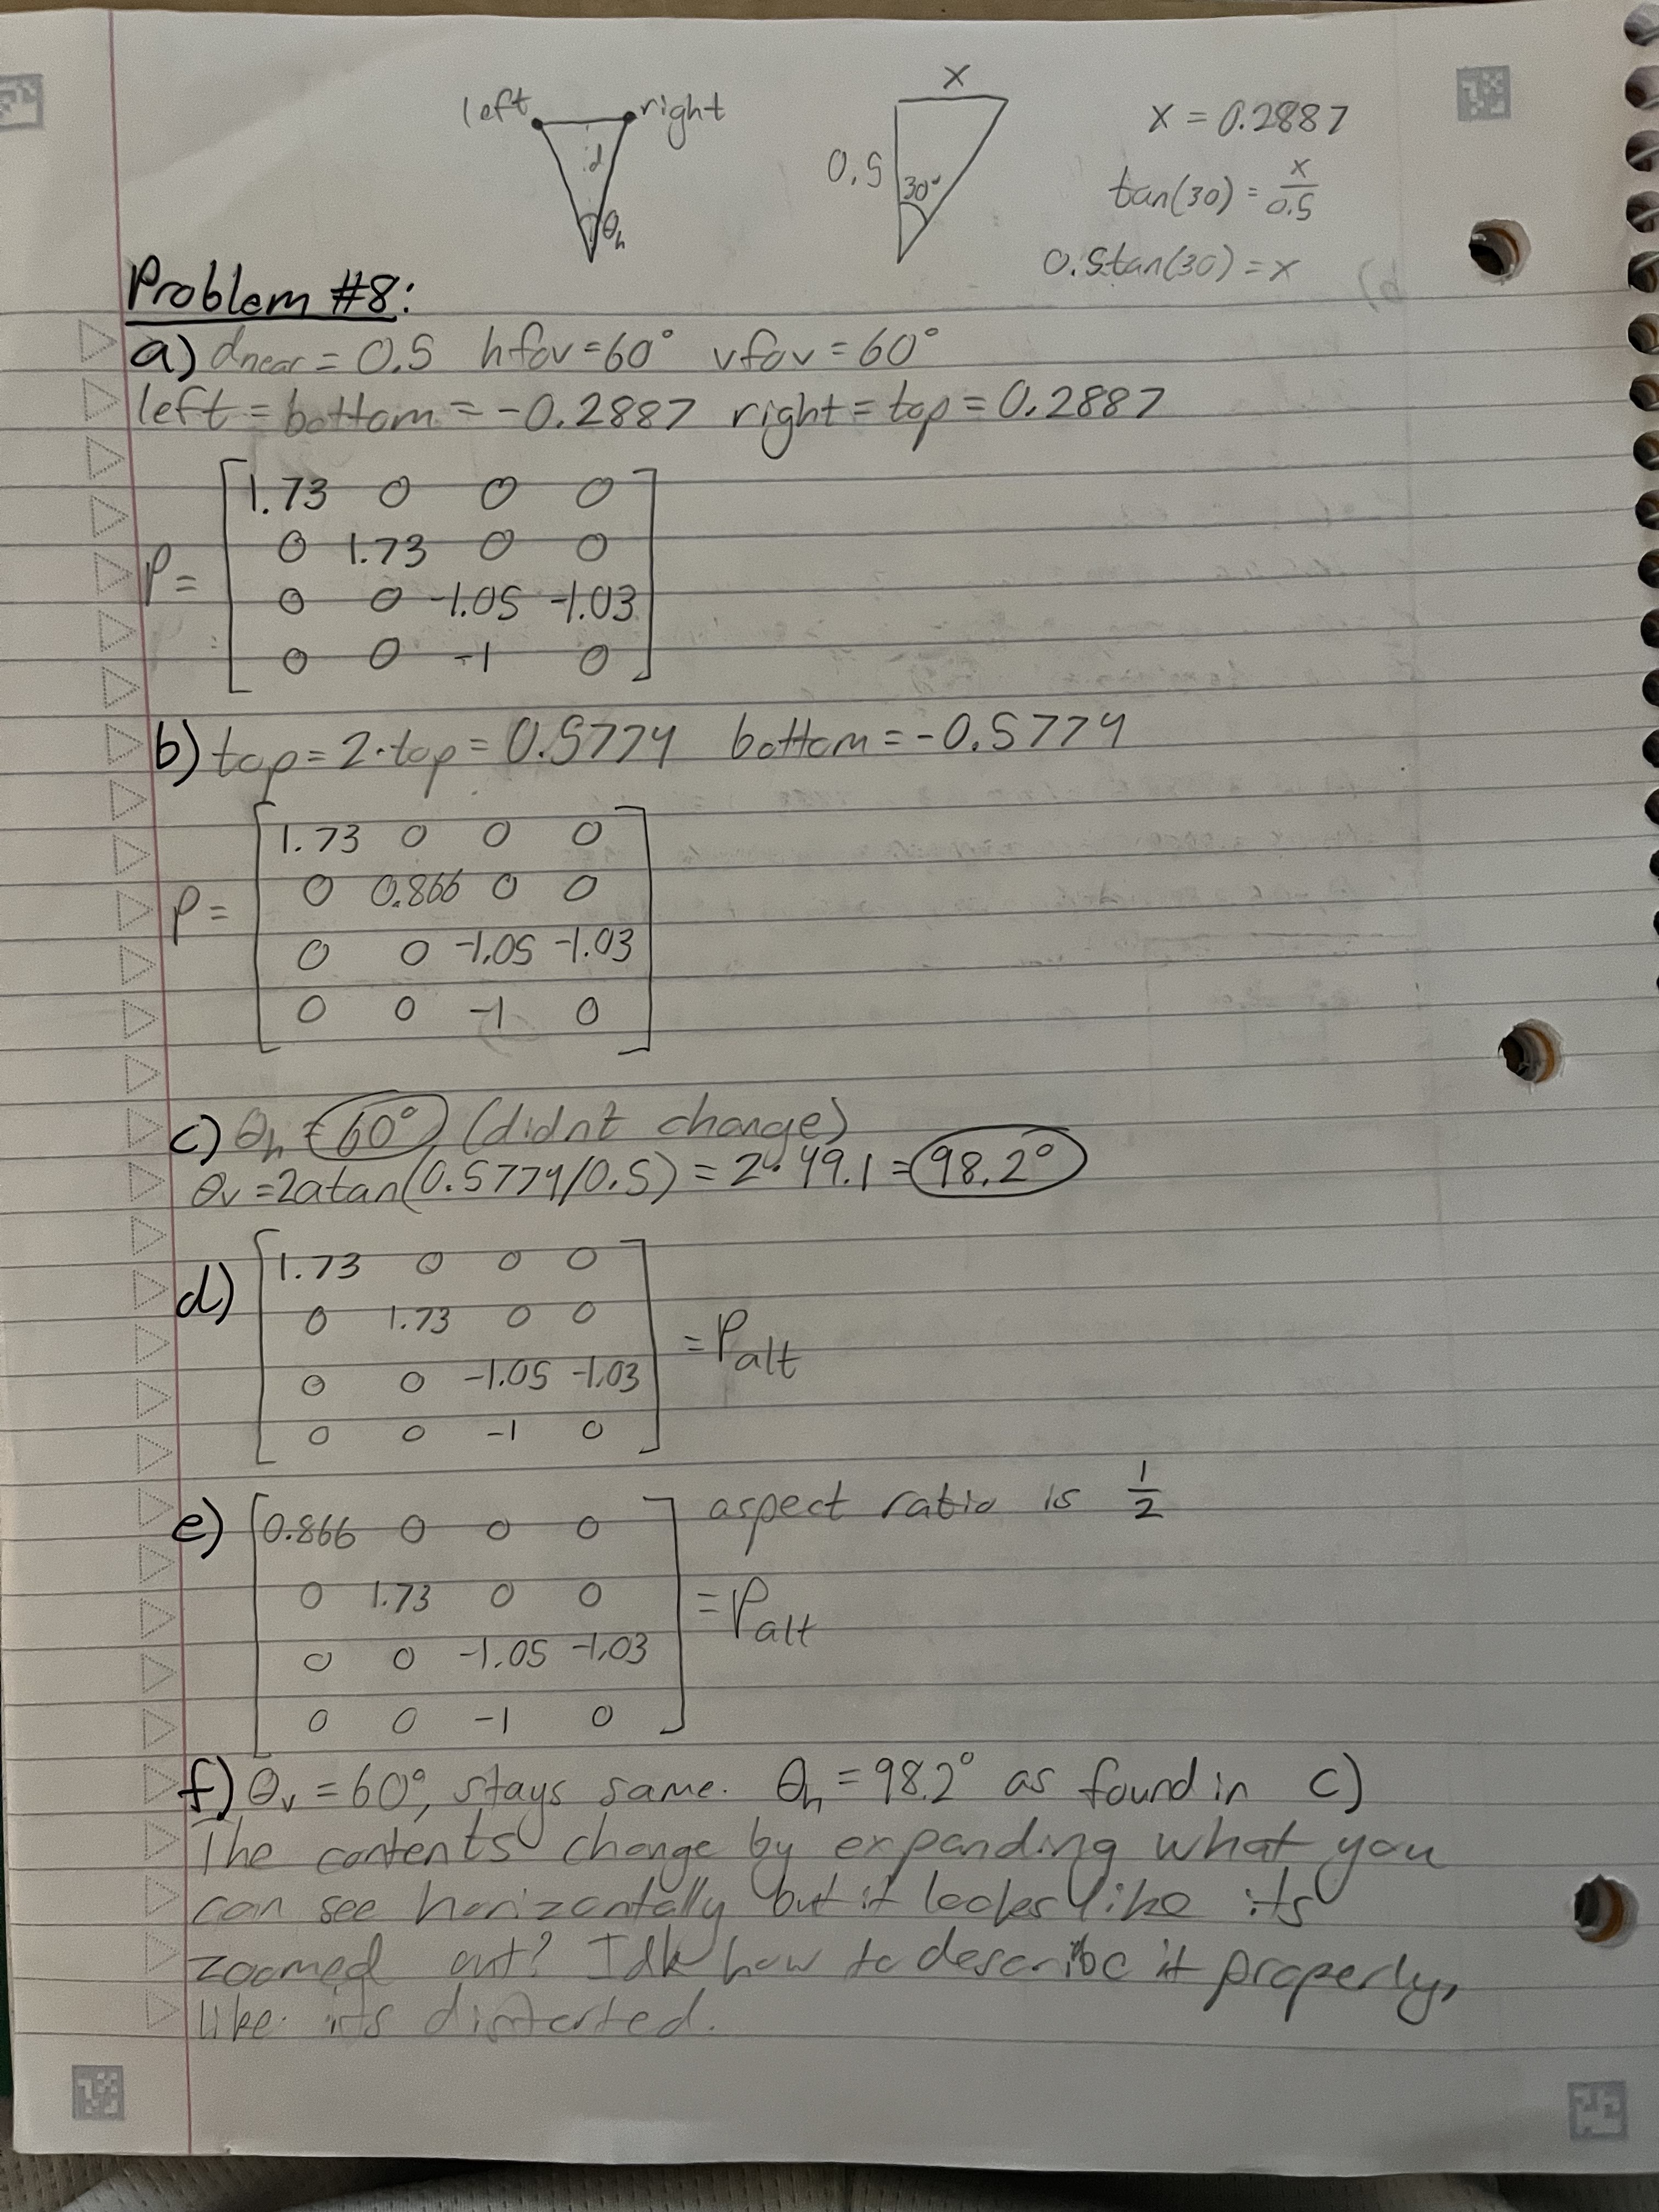 left right
d
θh
x
0.5
30°
x = 0.2887
tan(30) = x/0.5
0.5tan(30) = x
Problem #8:
a) dnear = 0.5 hfov = 60° vfov = 60°
left = bottom = -0.2887 right = top = 0.2887
P =
1.73 0 0 0
0 1.73 0 0
0 0 -1.05 -1.03
0 0 -1 0
b) top = 2·top = 0.5774 bottom = -0.5774
P =
1.73 0 0 0
0 0.866 0 0
0 0 -1.05 -1.03
0 0 -1 0
c) θh = 60° (didnt change)
θv = 2atan(0.5774/0.5) = 2·49.1 = 98.2°
d)
1.73 0 0 0
0 1.73 0 0
0 0 -1.05 -1.03
0 0 -1 0
= Palt
e) aspect ratio is 1/2
0.866 0 0 0
0 1.73 0 0
0 0 -1.05 -1.03
0 0 -1 0
= Palt
f) θv = 60°, stays same. θh = 98.2° as found in c)
The contents change by expanding what you
can see horizontally but it looks like its
zoomed out? Idk how to describe it properly,
like its distorted.